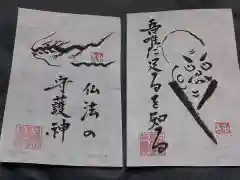 仏法の
守護神
吾唯に足るを知る